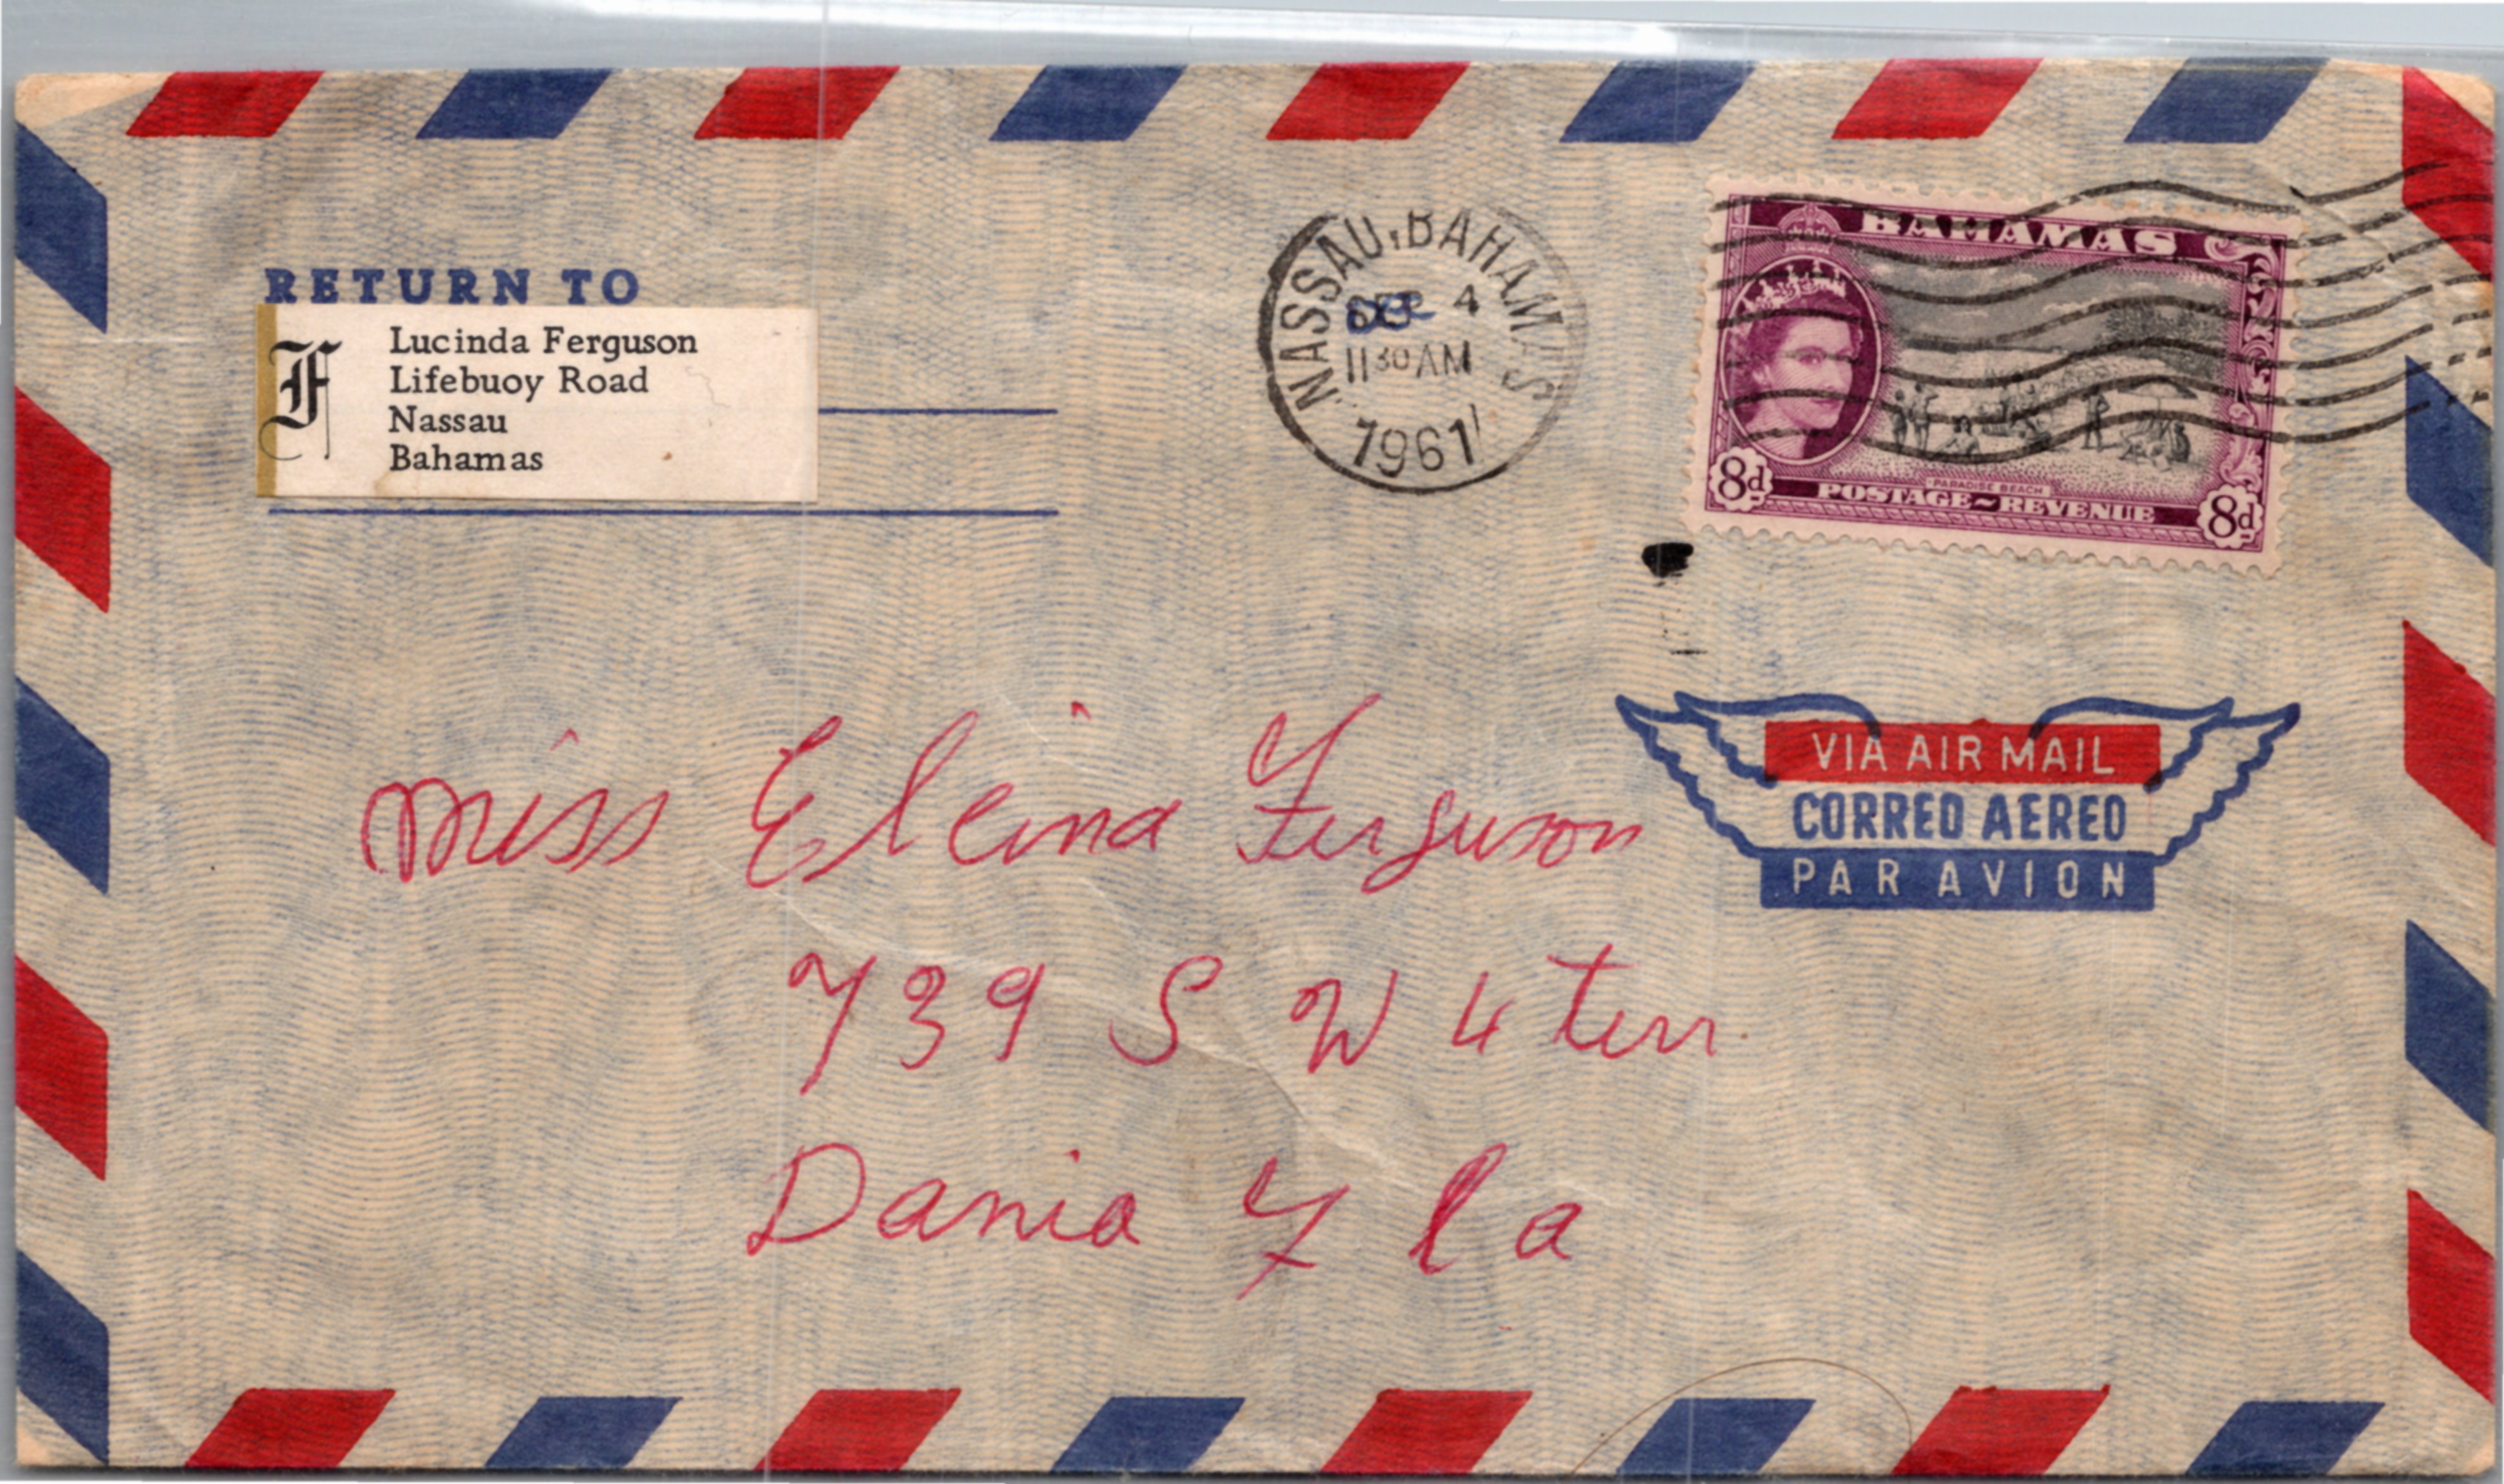 RETURN TO
F
Lucinda Ferguson
Lifebuoy Road
Nassau
Bahamas
NASSAU, BAHAMAS
4
1130 AM
1961
BAHAMAS
8d
PARADISE BEACH
POSTAGE~REVENUE
8d
VIA AIR MAIL
CORREO AEREO
PAR AVION
Miss Eleina Ferguson
739 S W 4 terr
Dania Fla